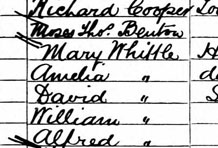 Richard Cooper
Moses Thos. Benton
Mary Whittle
Amelia "
David "
William "
Alfred "